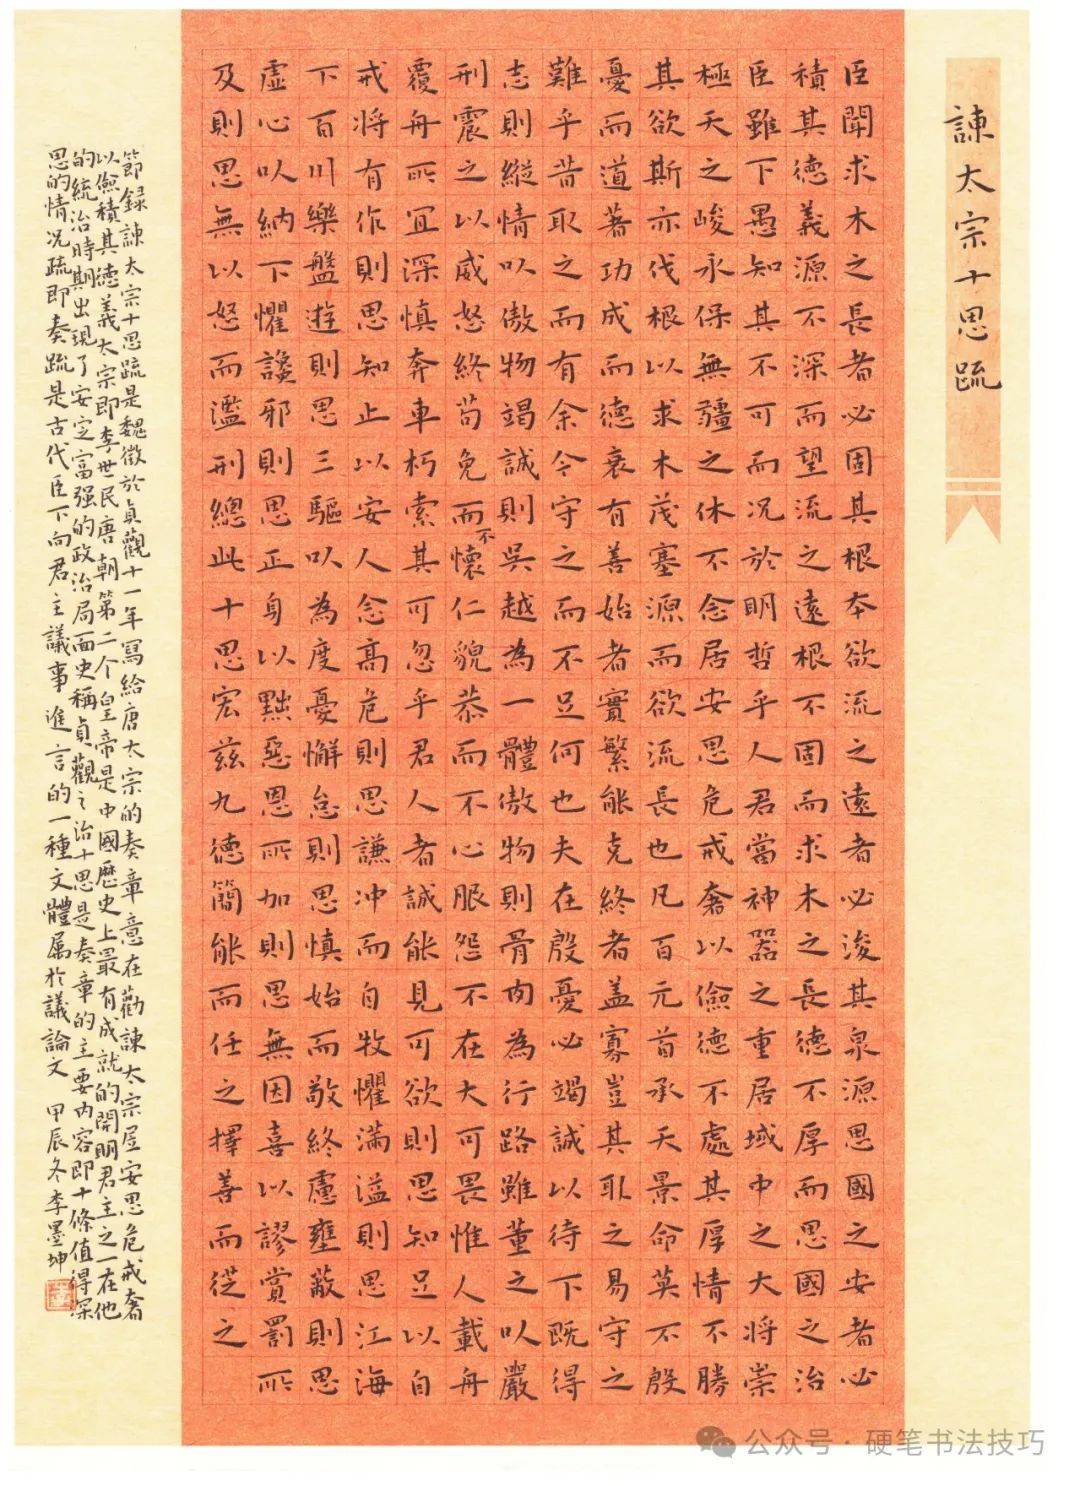 諫太宗十思疏
臣聞求木之長者必固其根本欲流之遠者必浚其泉源思國之安者必
積其德義源不深而望流之遠根不固而求木之長德不厚而思國之治
臣雖下愚知其不可而况於明哲乎人君當神器之重居域中之大将崇
極天之峻永保無疆之休不念居安思危戒奢以儉德不處其厚情不勝
其欲斯亦伐根以求木茂塞源而欲流長也凡百元首承天景命莫不殷
憂而道著功成而德衰有善始者實繁能克終者蓋寡豈其取之易守之
難乎昔取之而有余今守之而不足何也夫在殷憂必竭誠以待下既得
志則縱情以傲物竭誠則吳越為一體傲物則骨肉為行路雖董之以嚴
刑震之以威怒終苟免而不懷仁貌恭而不心服怨不在大可畏惟人載舟
覆舟所宜深慎奔車朽索其可忽乎君人者誠能見可欲則思知足以自
戒将有作則思知止以安人念高危則思謙冲而自牧懼滿溢則思江海
下百川樂盤遊則思三驅以為度憂懈怠則思慎始而敬終慮壅蔽則思
虛心以納下懼讒邪則思正身以黜惡恩所加則思無因喜以謬賞罰所
及則思無以怒而濫刑總此十思宏茲九德簡能而任之擇善而從之
節録諫太宗十思疏是魏徵於貞觀十一年寫給唐太宗的奏章意在勸諫太宗居安思危戒奢
以儉積其德義太宗即李世民唐朝第二个皇帝是中國歷史上最有成就的開明君主之一在他
的統治時期出現了安定富强的政治局面史稱貞觀之治十思是奏章的主要内容即十條值得深
思的情况疏即奏疏是古代臣下向君主議事進言的一種文體属於議論文 甲辰冬李墨坤
公众号·硬笔书法技巧